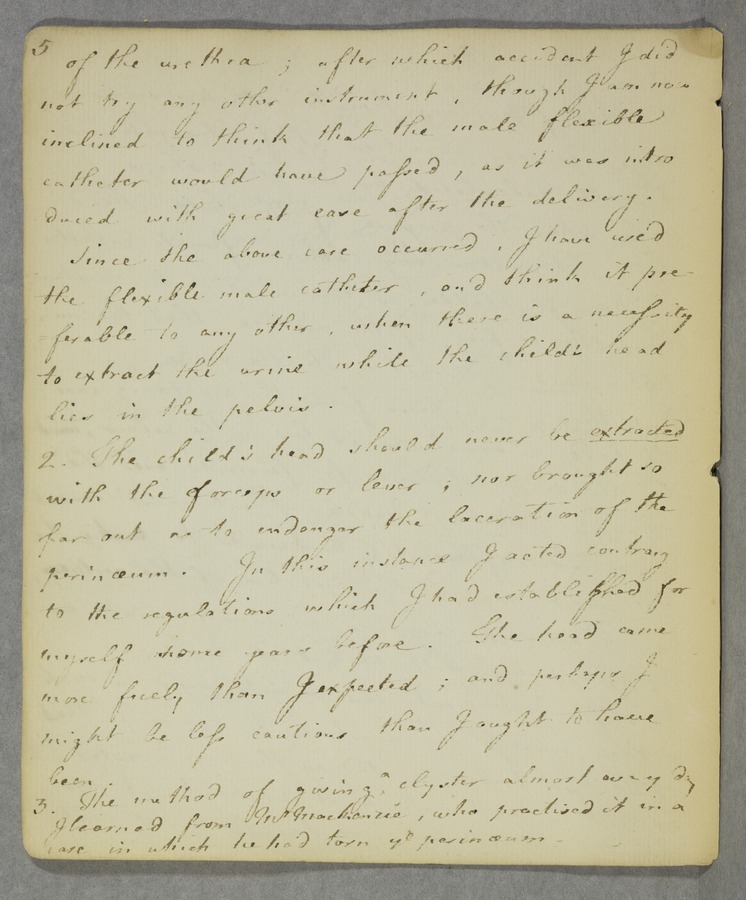 5
of the urethra ; after which accident I did
not try any other instrument , though I am now
inclined to think that the male flexible
catheter would have passed , as it was intro
duced with great ease after the delivery .
Since the above case occurred , I have used
the flexible male catheter , and think it pre-
-ferable to any other , when there is a necessity
to extract the urine while the child's head
lies in the pelvis .
2. The child's head should never be extracted
with the forceps or lever ; nor brought so
far out as to endanger the laceration of the
perinæum . In this instance I acted contrary
to the regulations which I had established for
myself some years before . The head came
more freely than I expected ; and perhaps I
might be less cautious than I ought to have
been
3. The method of giving a clyster almost every day
I learned from Mr Mackenzie , who practised it in a
case in which he had torn ye perinæum .